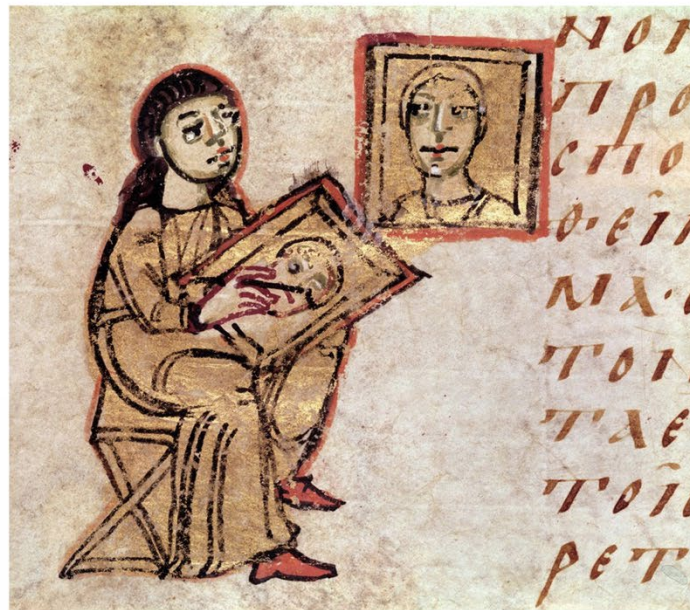 ΝΟΠ
ΠΡΟ
СΠΟ
Θ·ΕΙ͂Π
ΜΑ·
ΤΟΝ
ΤΑΕ
ΤΟΙ͂
ΡΕΤ